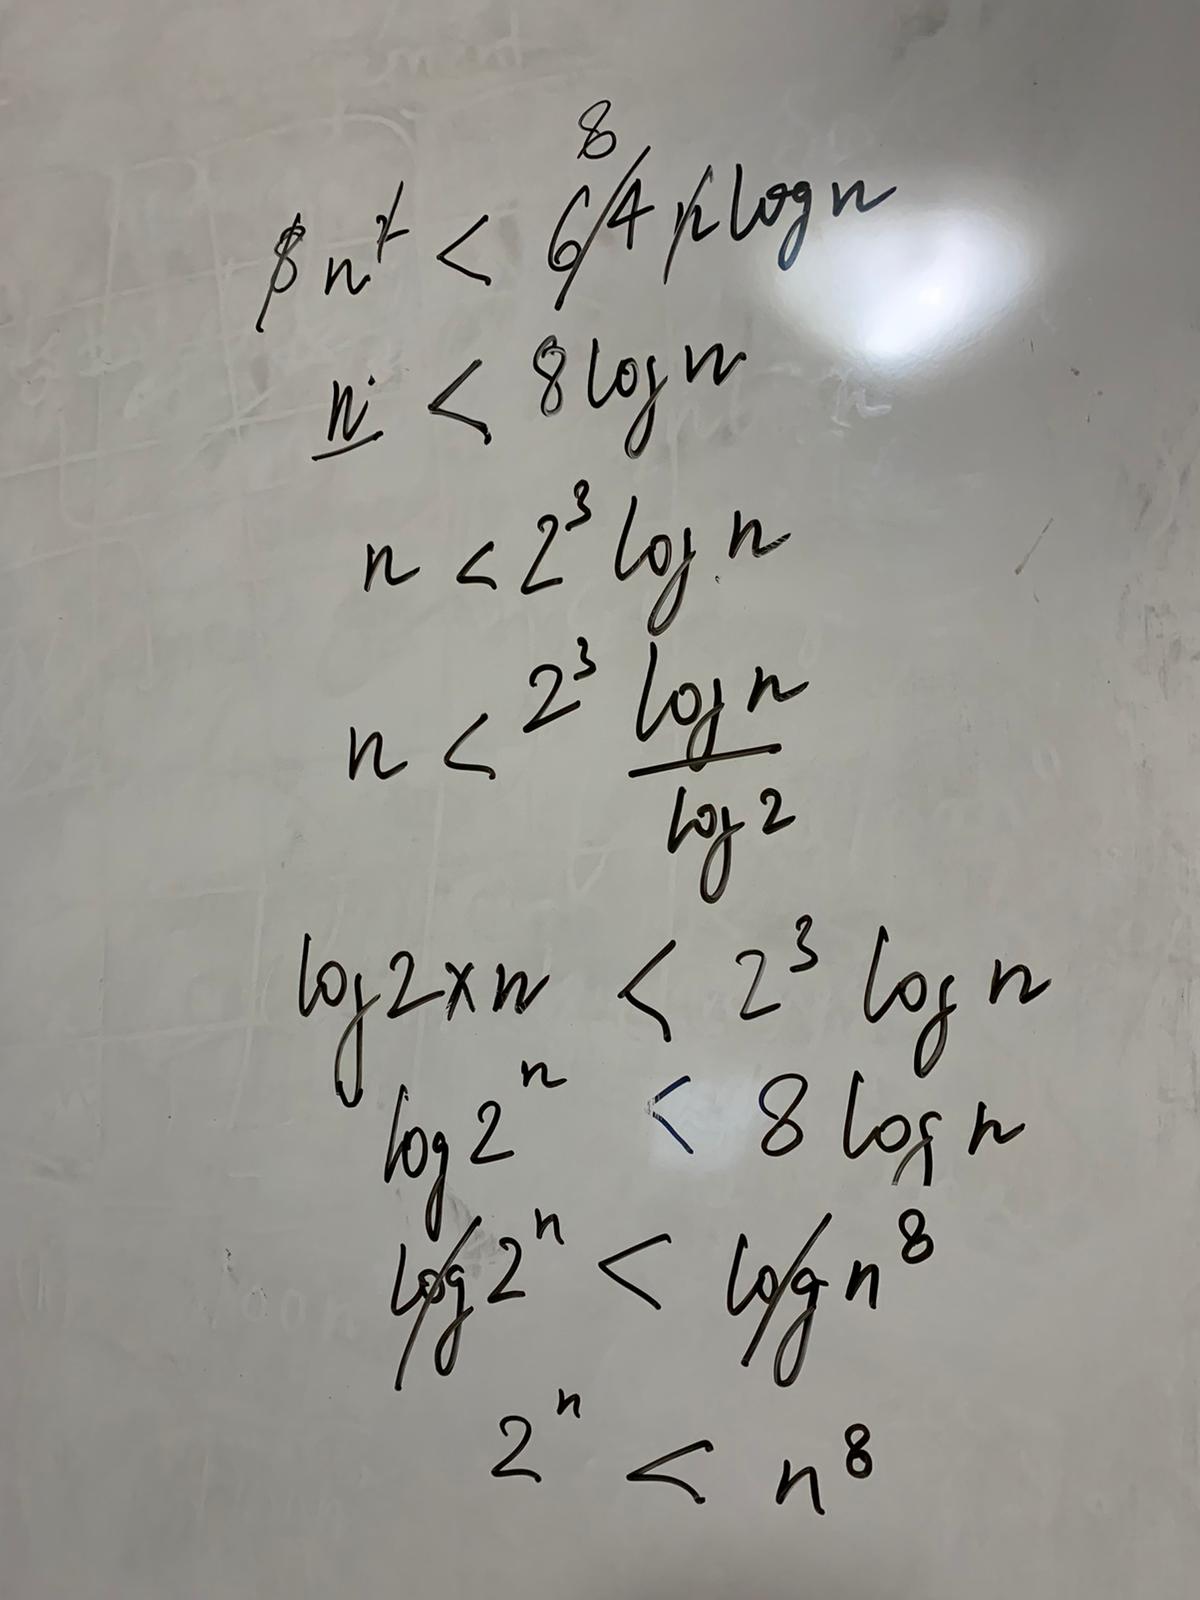 8
8n² < 64 n log n
n < 8 log n
n < 2³ log n
n < 2³ log n / log 2
log 2 × n < 2³ log n
log 2ⁿ < 8 log n
log 2ⁿ < log n⁸
2ⁿ < n⁸